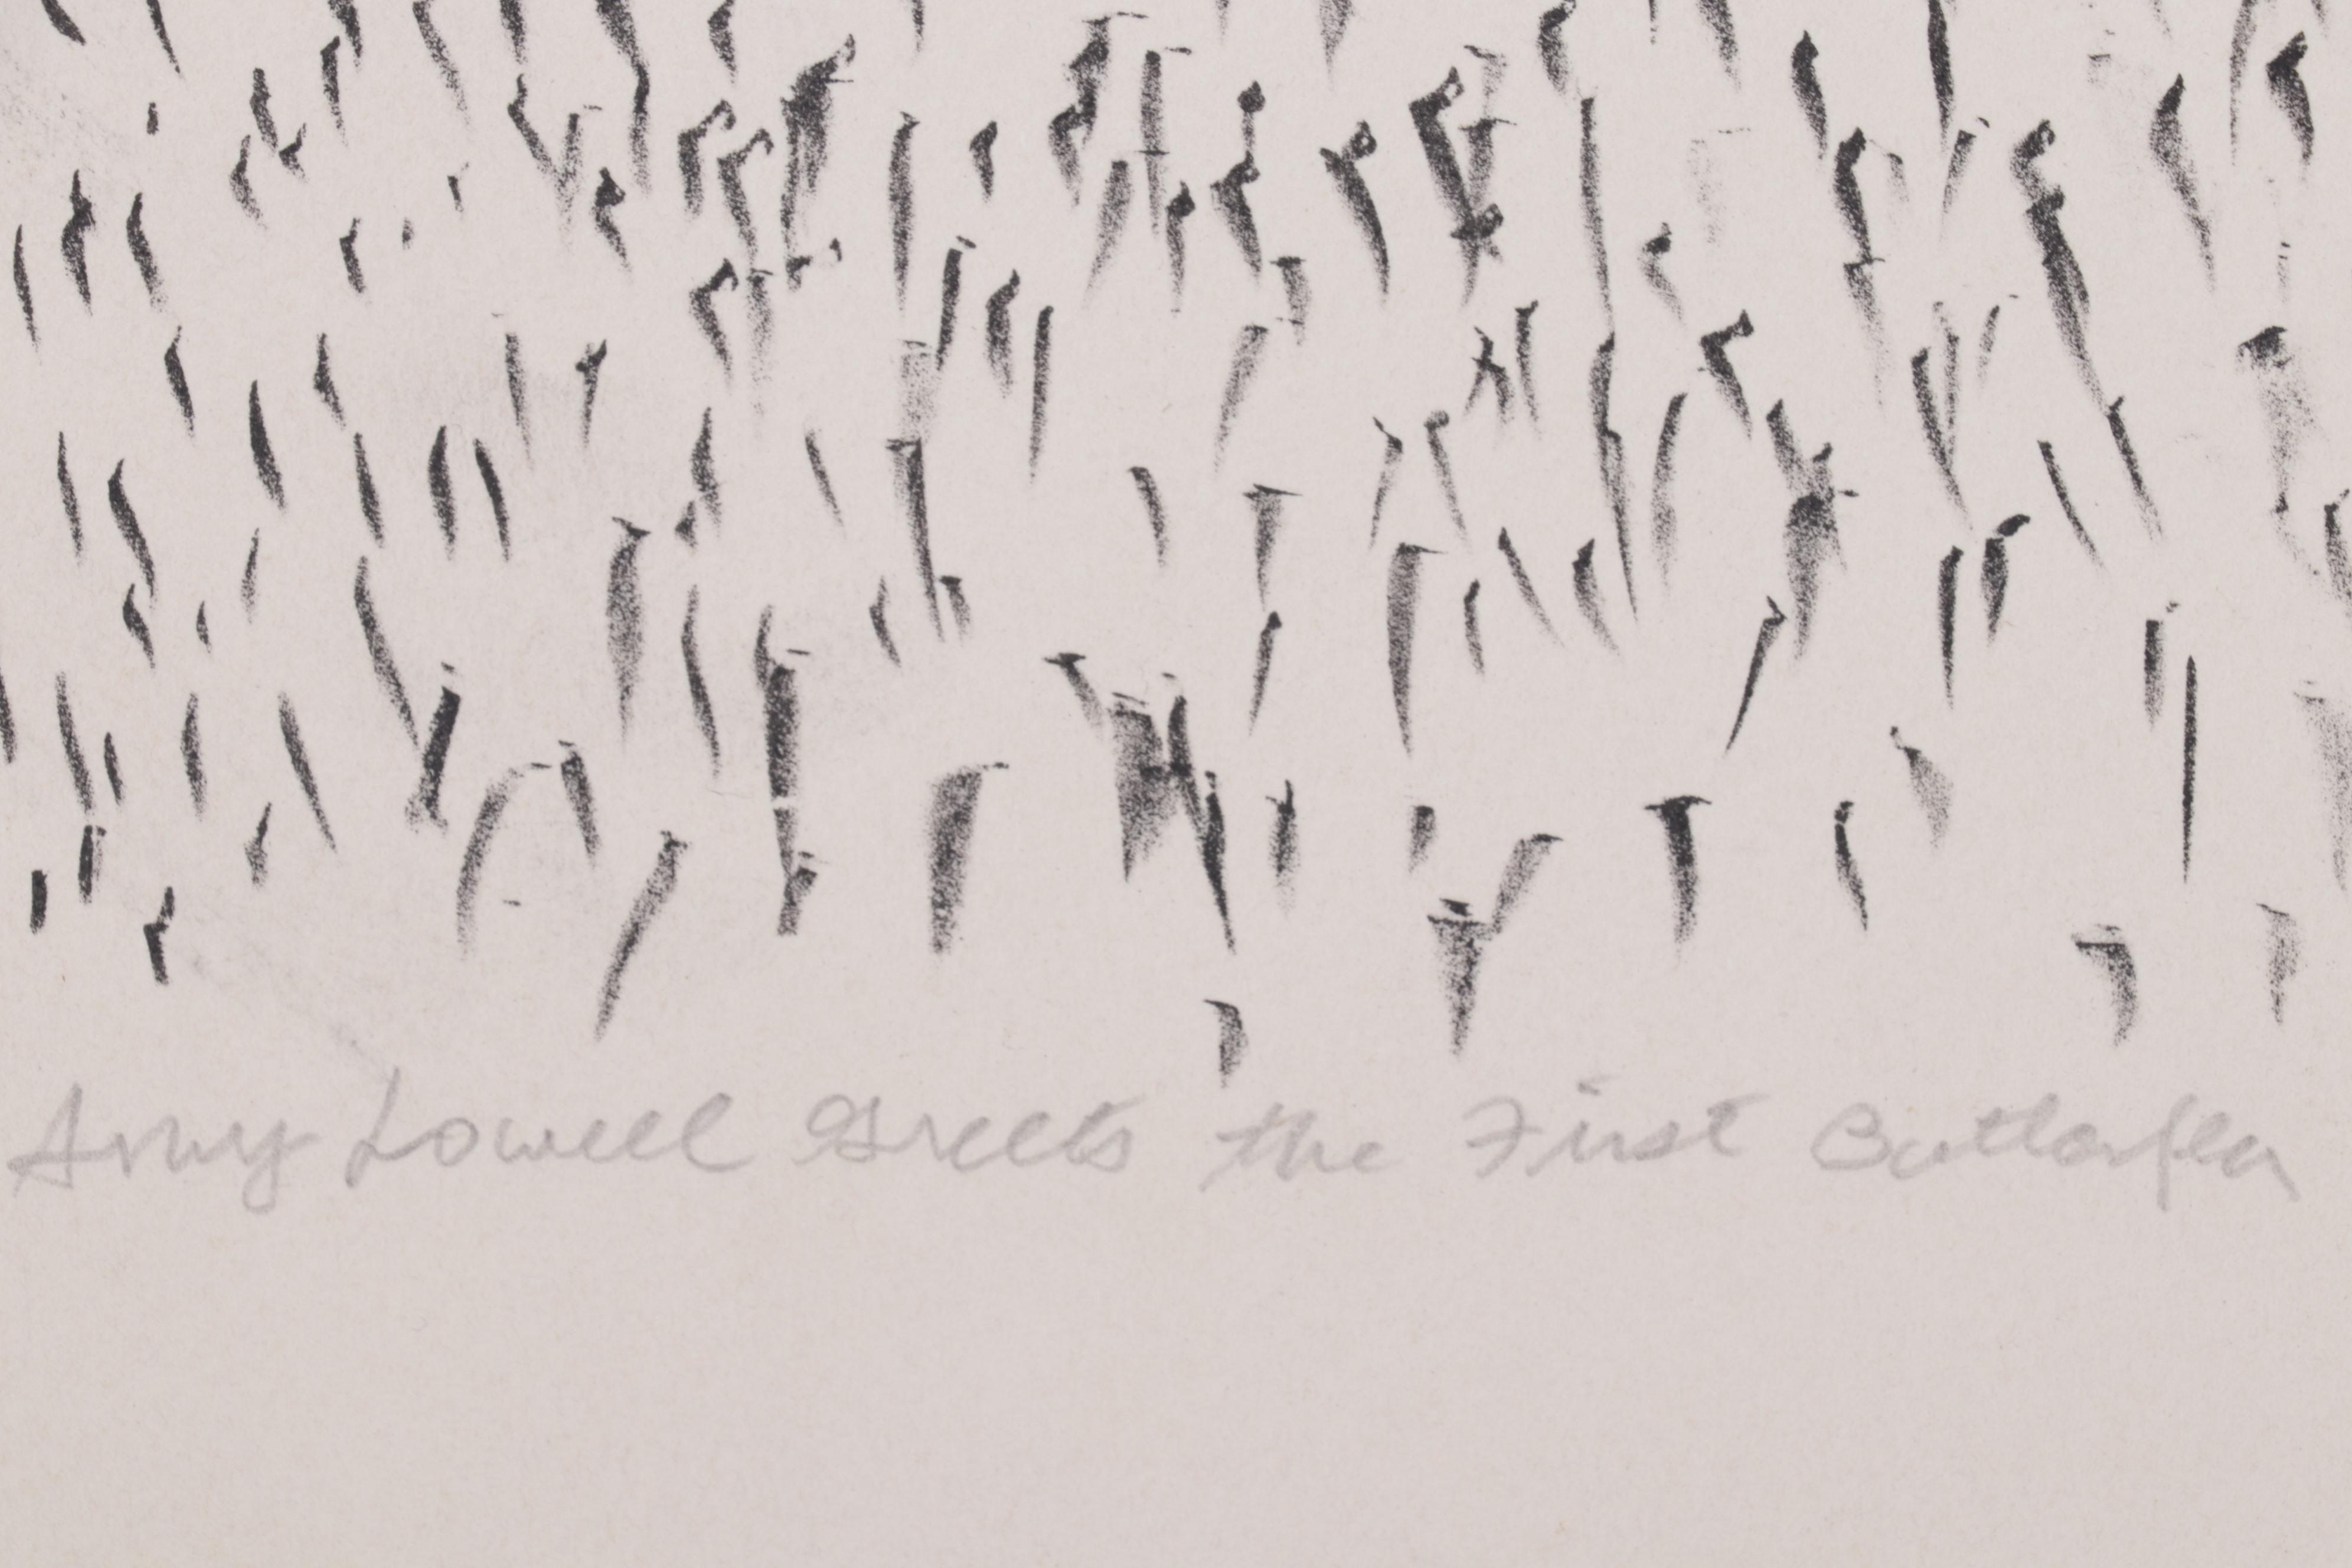 Amy Lowell Greets the First Butterfly